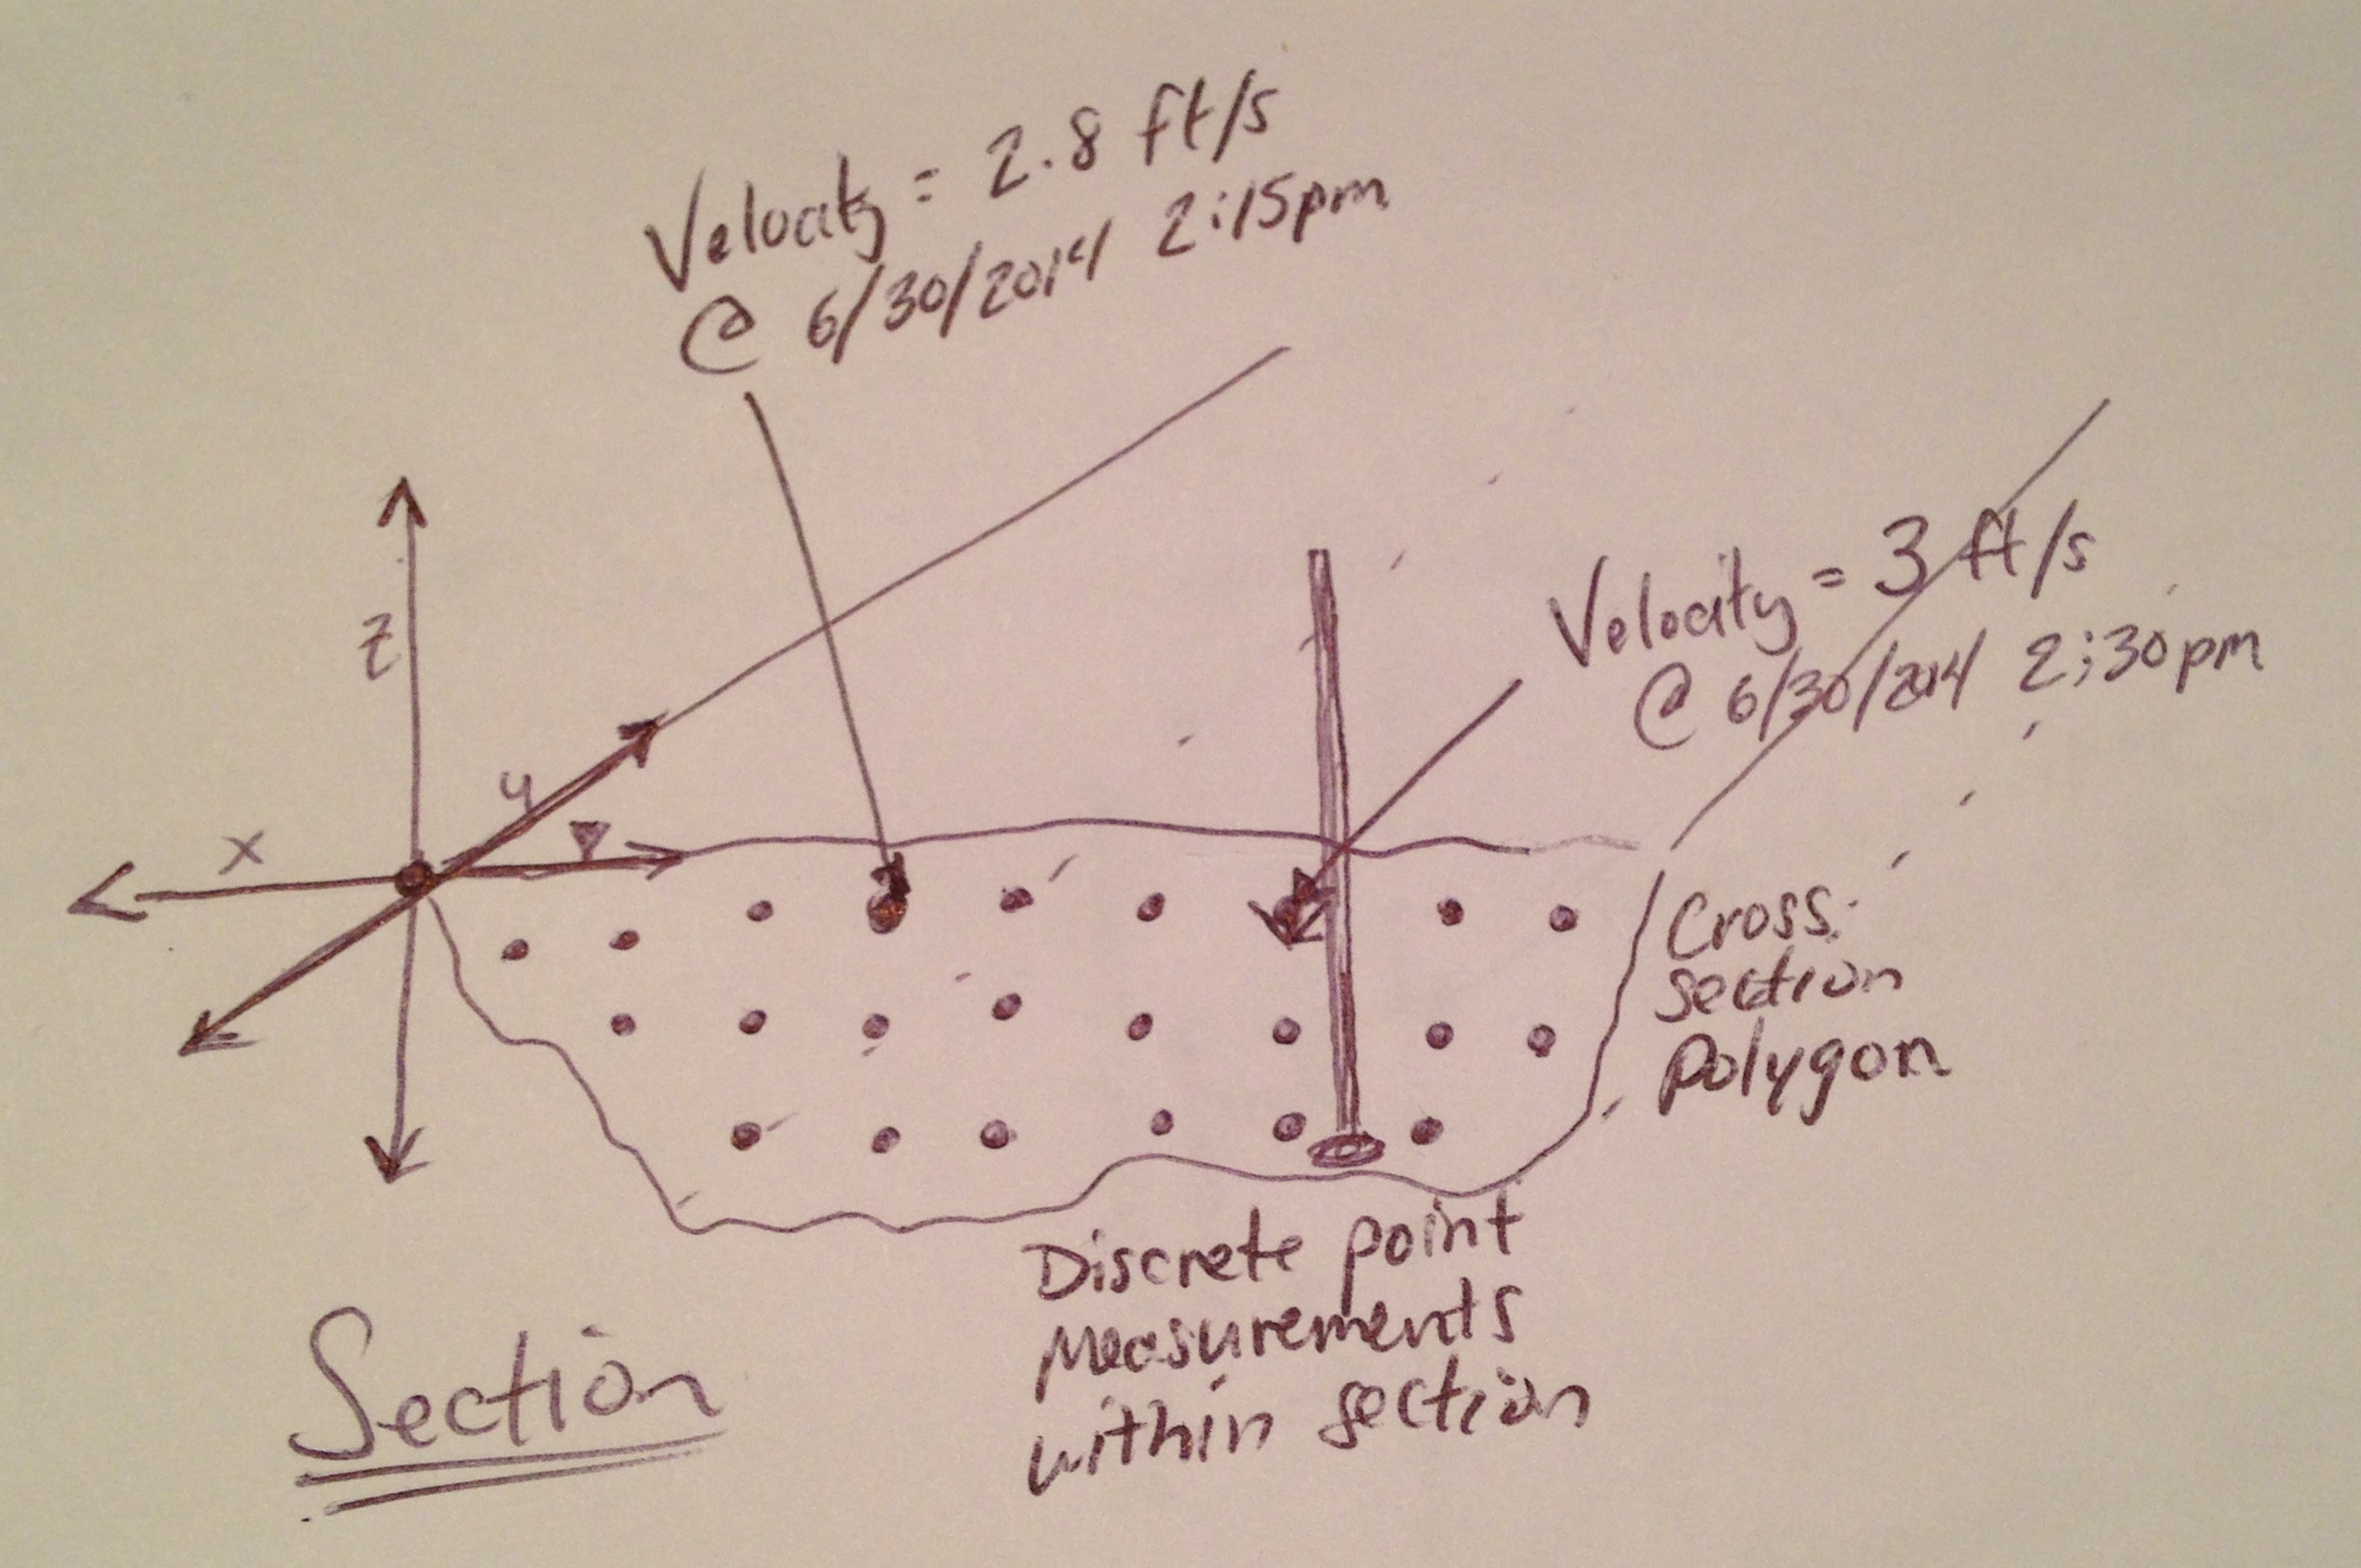 Velocity = 2.8 ft/s
@ 6/30/2014 2:15pm
Velocity = 3 ft/s
@ 6/30/2014 2:30pm
z
y
x
Cross
section
Polygon
Discrete point
Measurements
within section
Section